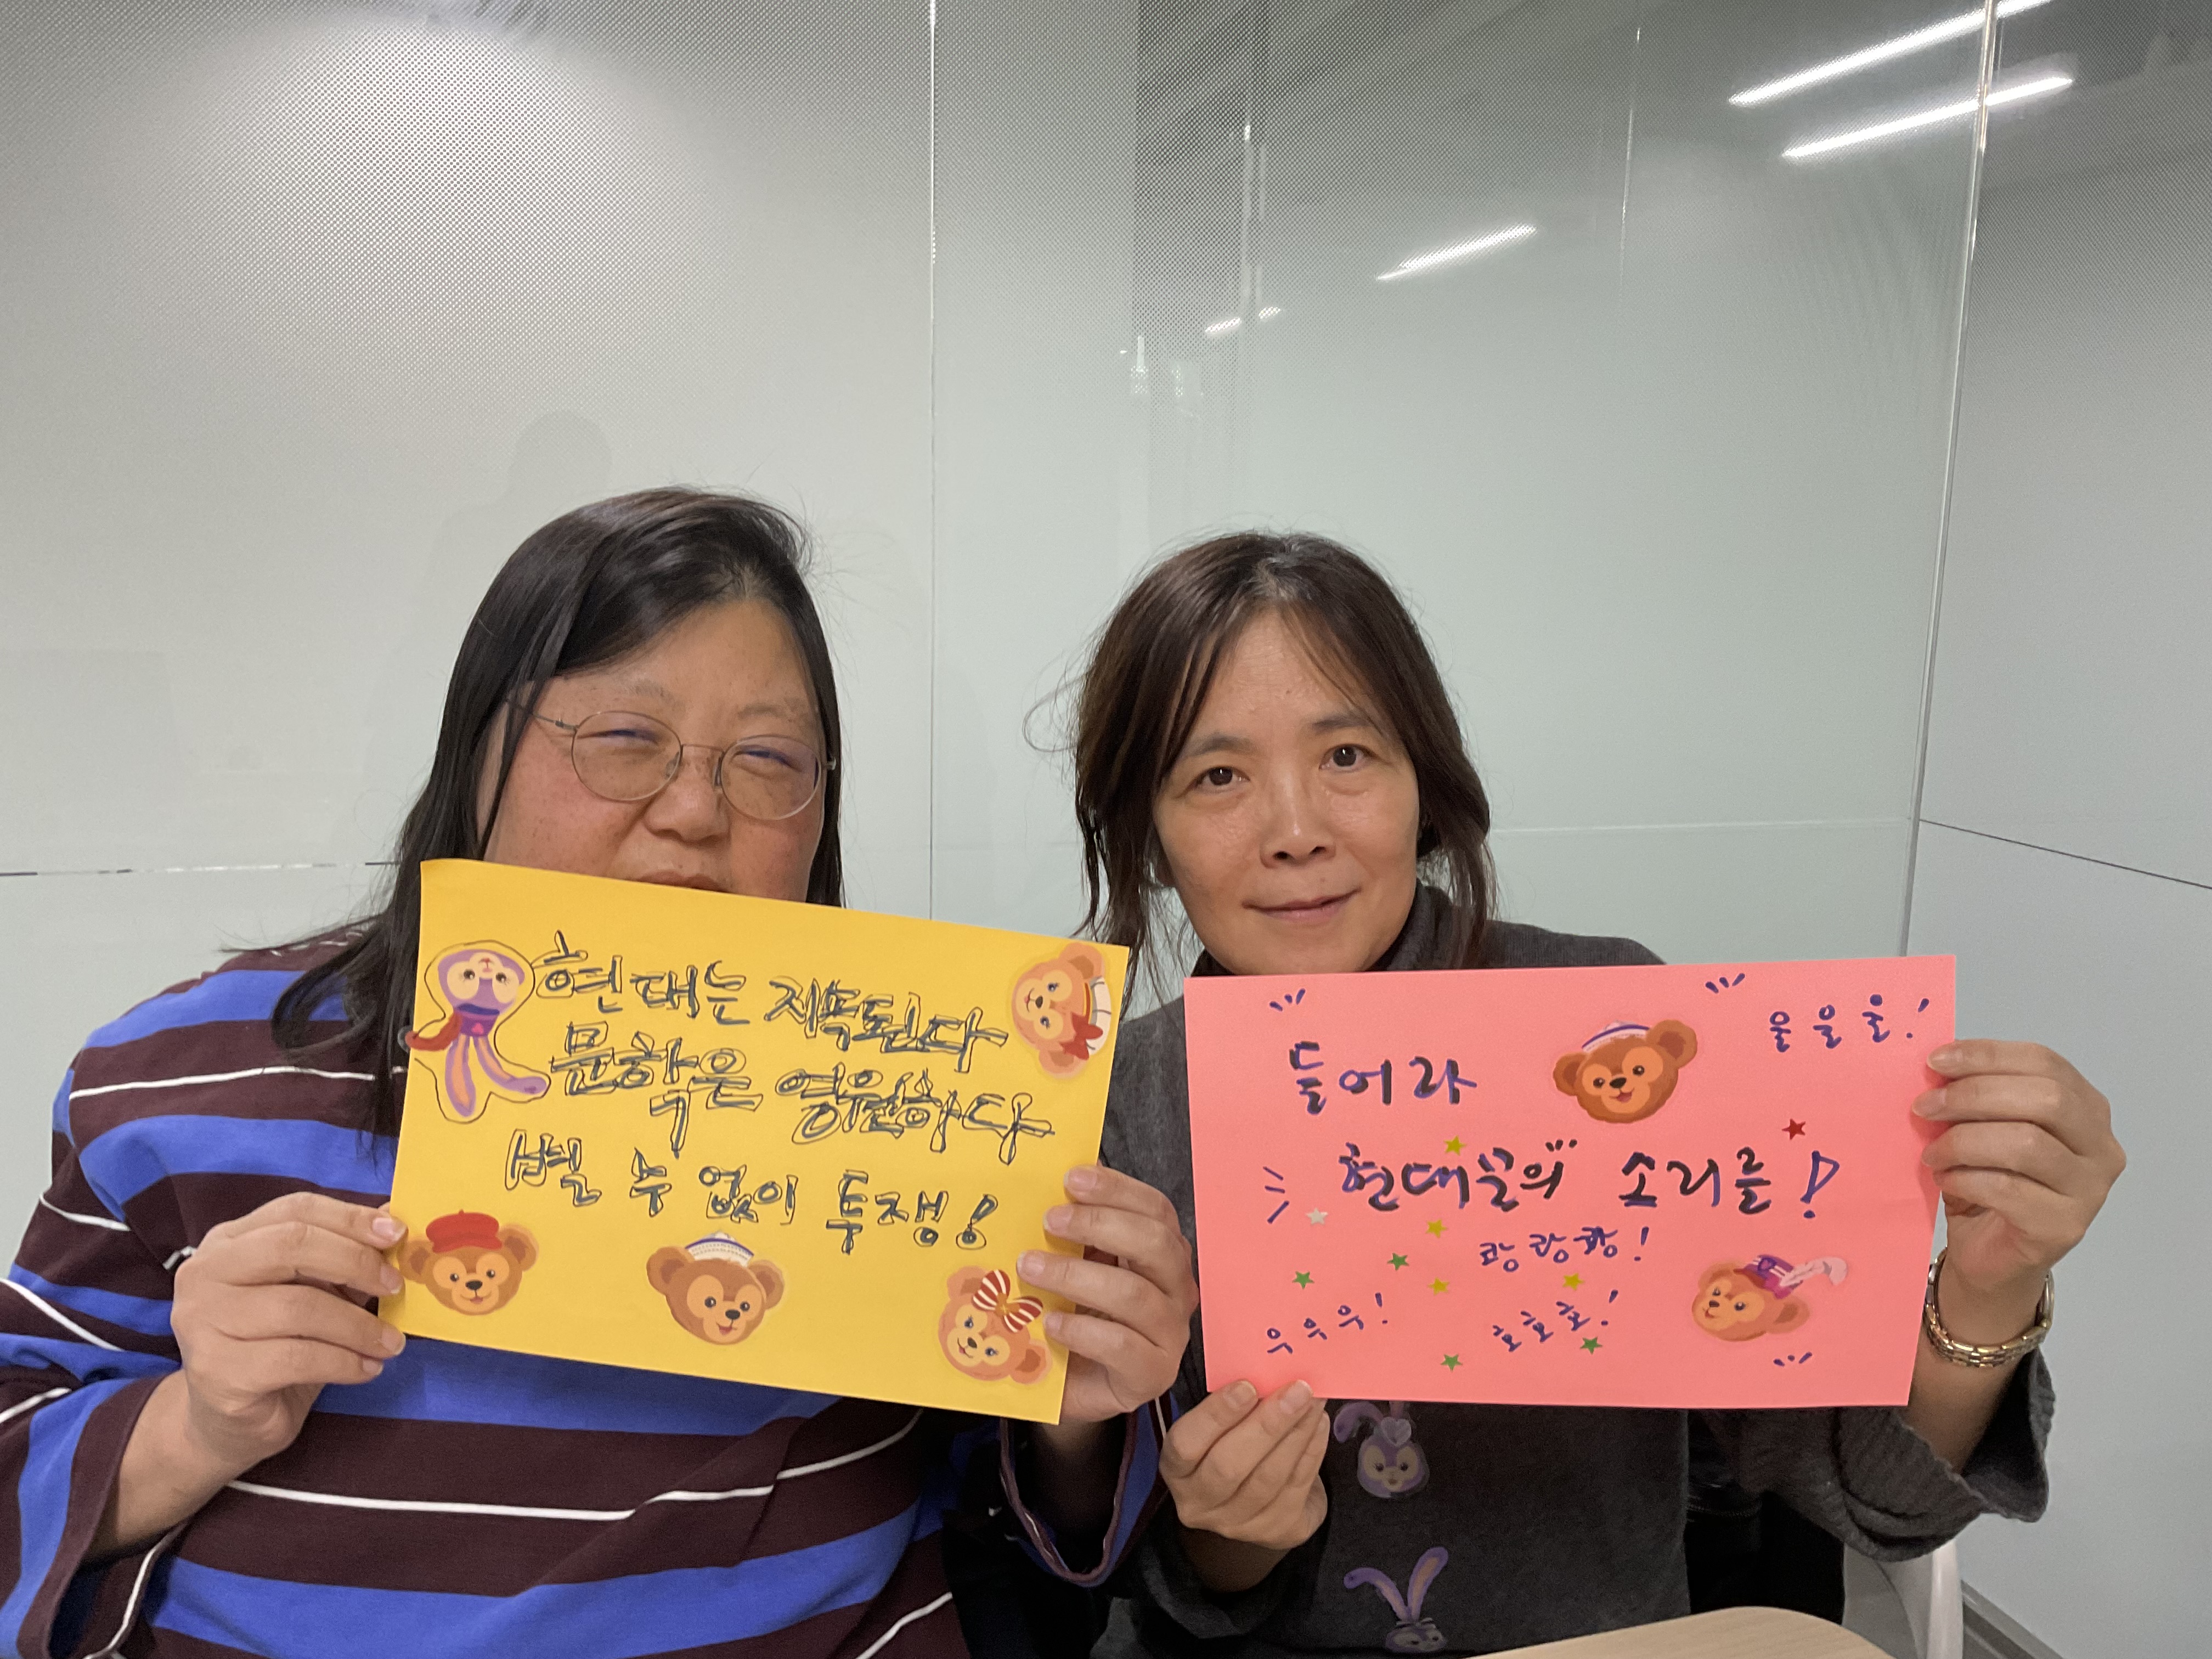 현대는 지속된다
문학은 영원하다
별 수 없이 투쟁!
울 울 울!
들어라
현대문의 소리를!
쾅 쾅 쾅!
우 우 우!
호 호 호!